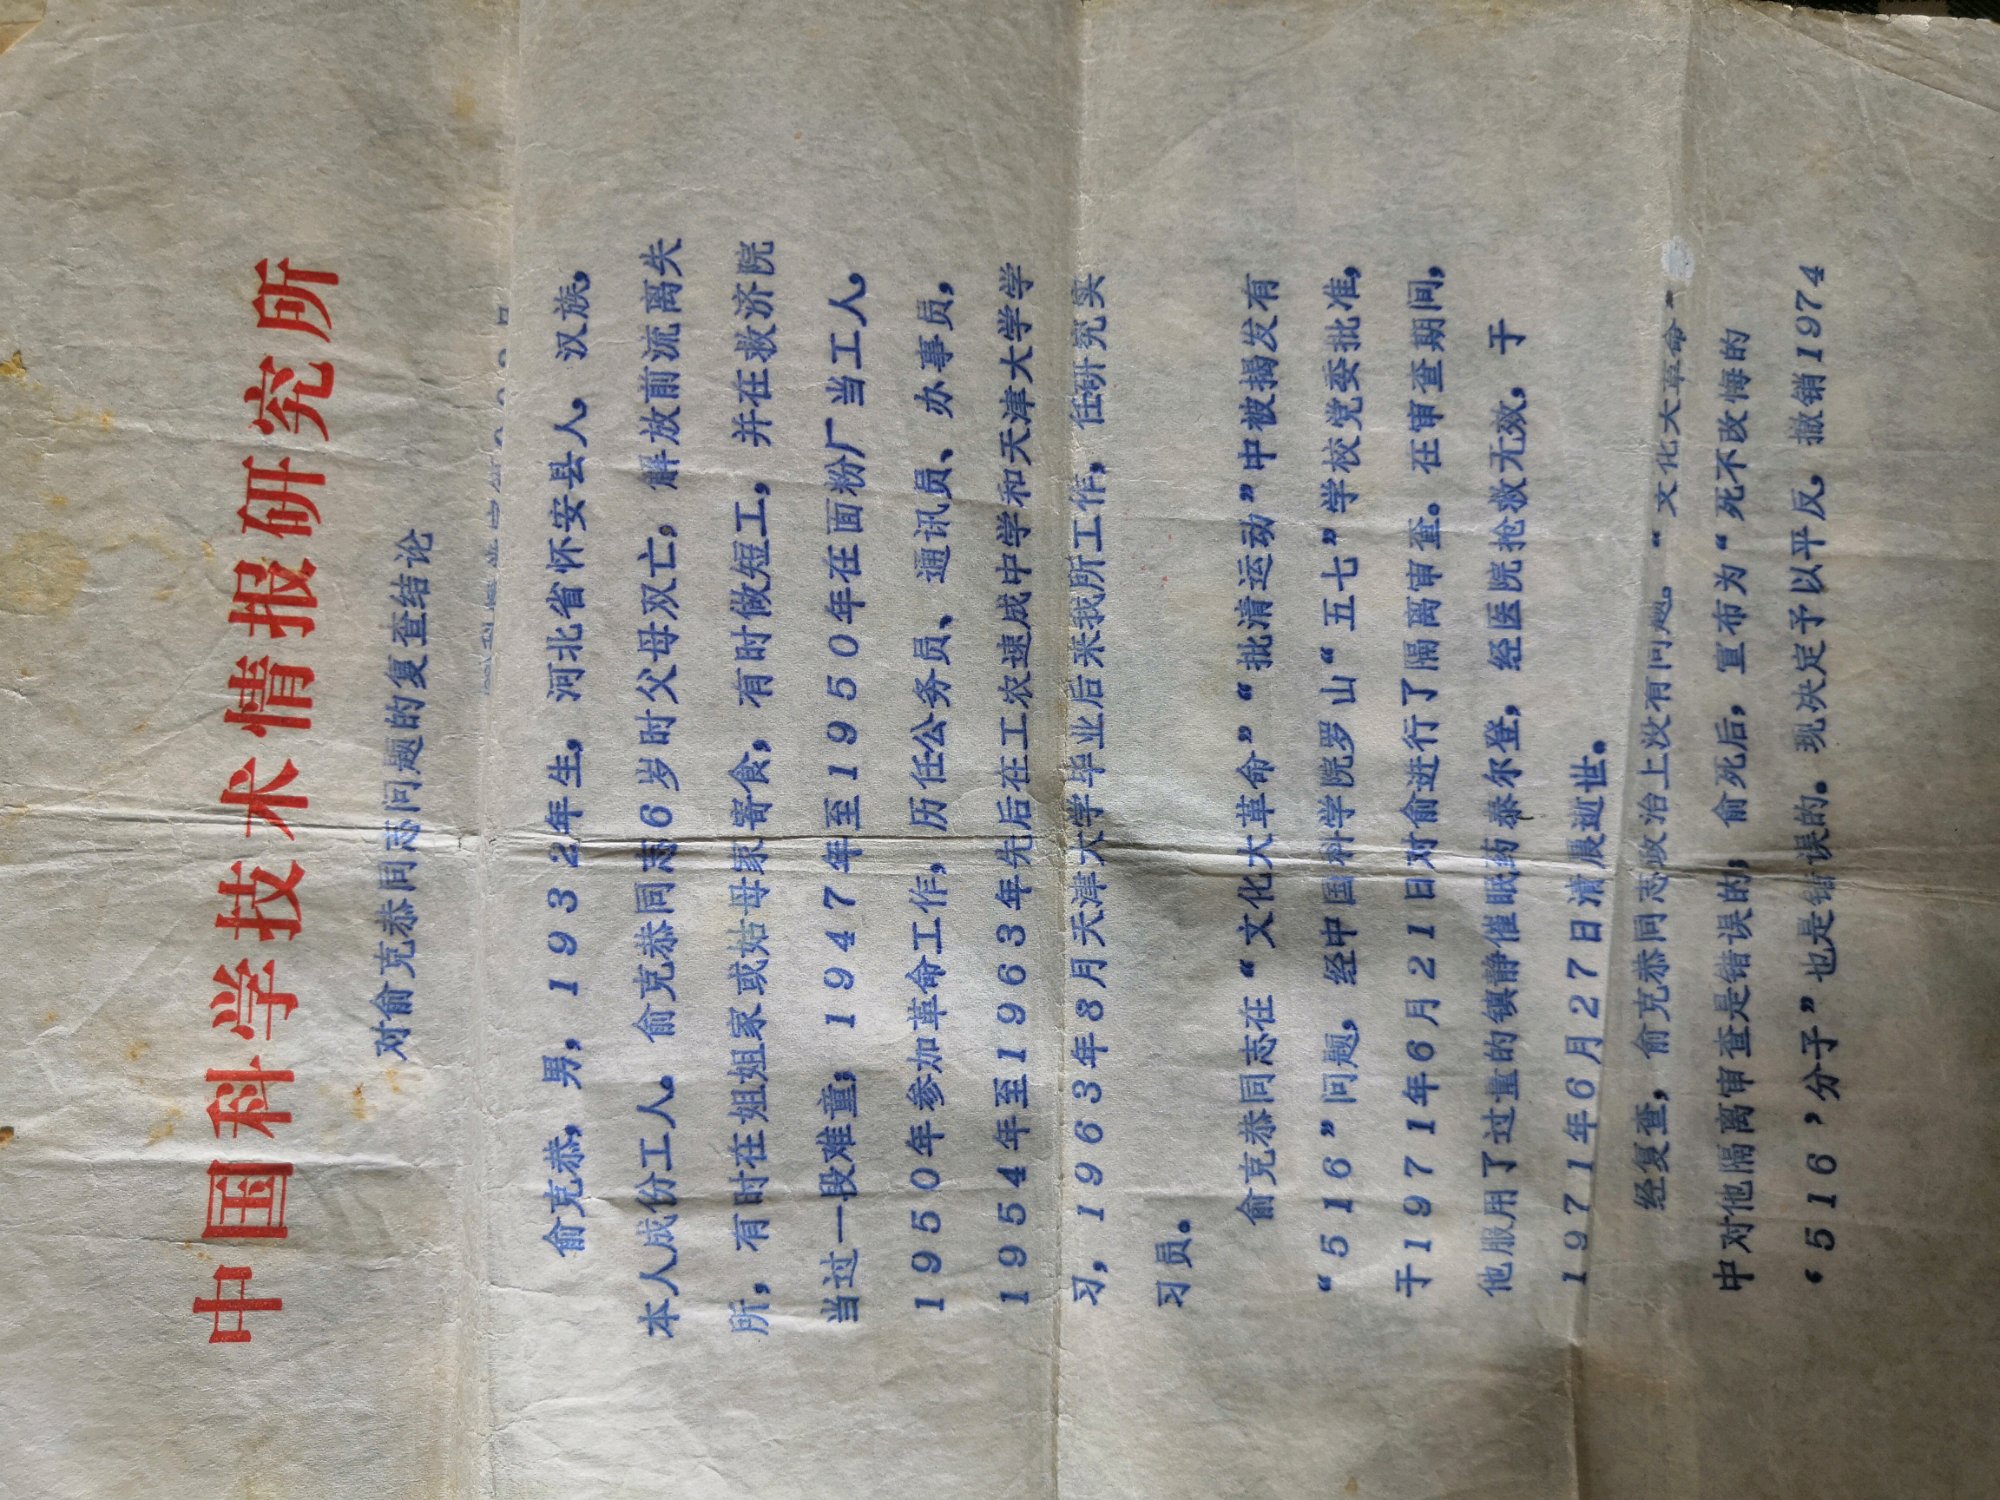 中国科学技术情报研究所
对俞克恭同志问题的复查结论
俞克恭，男，1932年生，河北省怀安县人，汉族，
本人成份工人。俞克恭同志6岁时父母双亡，解放前流离失
所，有时在姐姐家或姑母家寄食，有时做短工，并在救济院
当过一段难童；1947年至1950年在面粉厂当工人，
1950年参加革命工作，历任公务员、通讯员、办事员，
1954年至1963年先后在工农速成中学和天津大学学
习，1963年8月天津大学毕业后来我所工作，任研究实
习员。
俞克恭同志在“文化大革命”“批清运动”中被揭发有
“516”问题，经中国科学院罗山“五七”学校党委批准，
于1971年6月21日对俞进行了隔离审查。在审查期间，
他服用了过量的镇静催眠药泰尔登，经医院抢救无效，于
1971年6月27日清晨逝世。
经复查，俞克恭同志政治上没有问题。“文化大革命”
中对他隔离审查是错误的；俞死后，宣布为“死不改悔的
‘516’分子”也是错误的。现决定予以平反，撤销1974